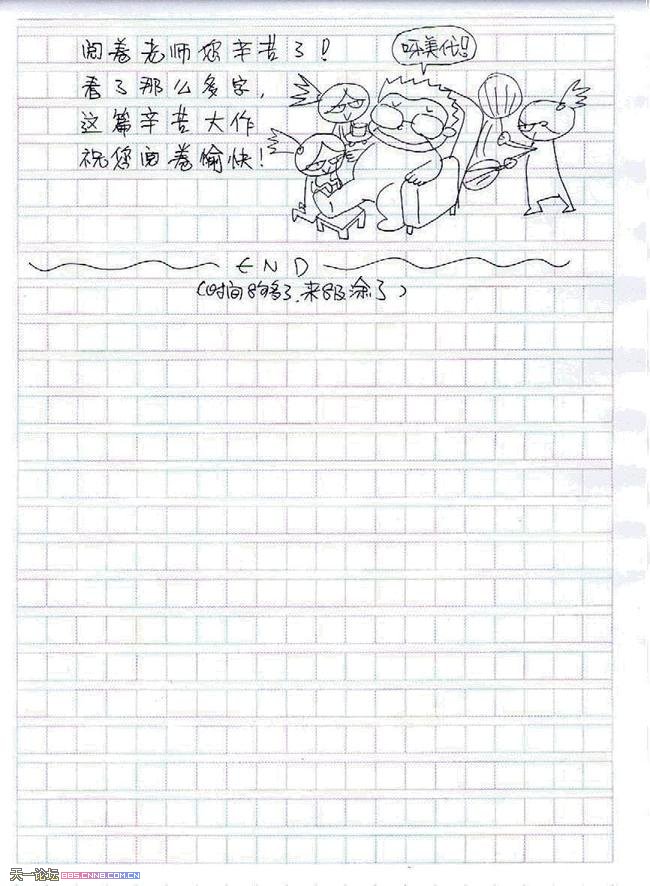 阅卷老师您辛苦了!
看了那么多字,
这篇辛苦大作
祝您阅卷愉快!
呀美代!!
END
(时间够多了,来
涂了)
天一论坛 BBS.CNNB.COM.CN